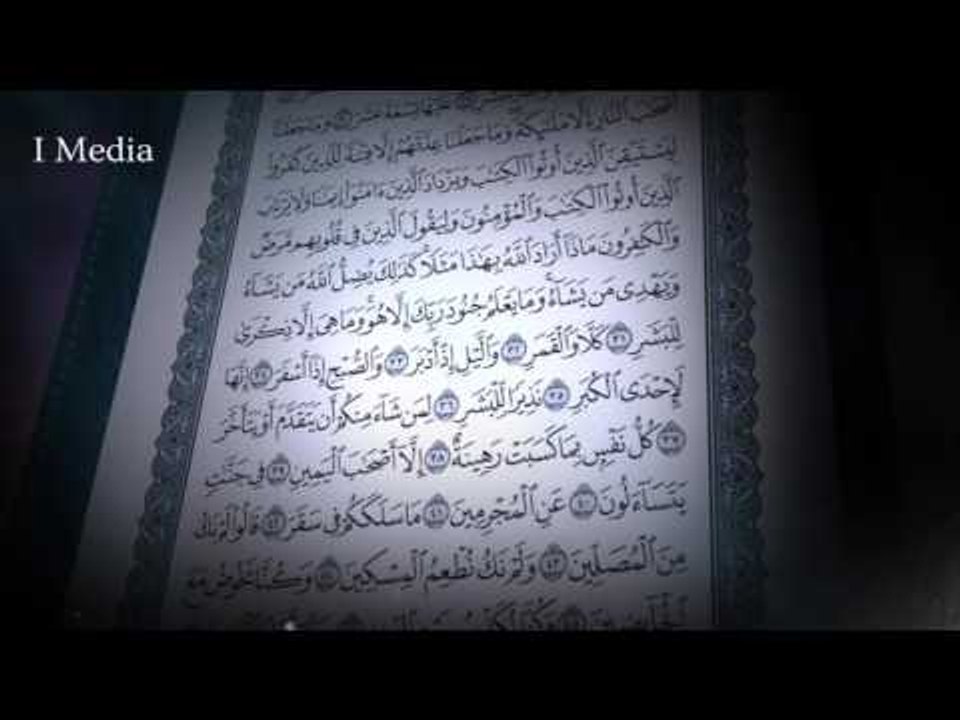 I Media
أَصْحَٰبَ ٱلنَّارِ إِلَّا مَلَٰٓئِكَةً وَمَا جَعَلْنَا عِدَّتَهُمْ إِلَّا فِتْنَةً لِّلَّذِينَ كَفَرُوا۟
لِيَسْتَيْقِنَ ٱلَّذِينَ أُوتُوا۟ ٱلْكِتَٰبَ وَيَزْدَادَ ٱلَّذِينَ ءَامَنُوٓا۟ إِيمَٰنًا وَلَا يَرْتَابَ
ٱلَّذِينَ أُوتُوا۟ ٱلْكِتَٰبَ وَٱلْمُؤْمِنُونَ وَلِيَقُولَ ٱلَّذِينَ فِى قُلُوبِهِم مَّرَضٌ
وَٱلْكَٰفِرُونَ مَاذَآ أَرَادَ ٱللَّهُ بِهَٰذَا مَثَلًا كَذَٰلِكَ يُضِلُّ ٱللَّهُ مَن يَشَآءُ
وَيَهْدِى مَن يَشَآءُ وَمَا يَعْلَمُ جُنُودَ رَبِّكَ إِلَّا هُوَ وَمَا هِىَ إِلَّا ذِكْرَىٰ
لِلْبَشَرِ ٣١ كَلَّا وَٱلْقَمَرِ ٣٢ وَٱلَّيْلِ إِذْ أَدْبَرَ ٣٣ وَٱلصُّبْحِ إِذَآ أَسْفَرَ ٣٤ إِنَّهَا
لَإِحْدَى ٱلْكُبَرِ ٣٥ نَذِيرًا لِّلْبَشَرِ ٣٦ لِمَن شَآءَ مِنكُمْ أَن يَتَقَدَّمَ أَوْ يَتَأَخَّرَ
٣٧ كُلُّ نَفْسٍۭ بِمَا كَسَبَتْ رَهِينَةٌ ٣٨ إِلَّآ أَصْحَٰبَ ٱلْيَمِينِ ٣٩ فِى جَنَّٰتٍ
يَتَسَآءَلُونَ ٤٠ عَنِ ٱلْمُجْرِمِينَ ٤١ مَا سَلَكَكُمْ فِى سَقَرَ ٤٢ قَالُوا۟ لَمْ نَكُ
مِنَ ٱلْمُصَلِّينَ ٤٣ وَلَمْ نَكُ نُطْعِمُ ٱلْمِسْكِينَ ٤٤ وَكُنَّا نَخُوضُ مَعَ